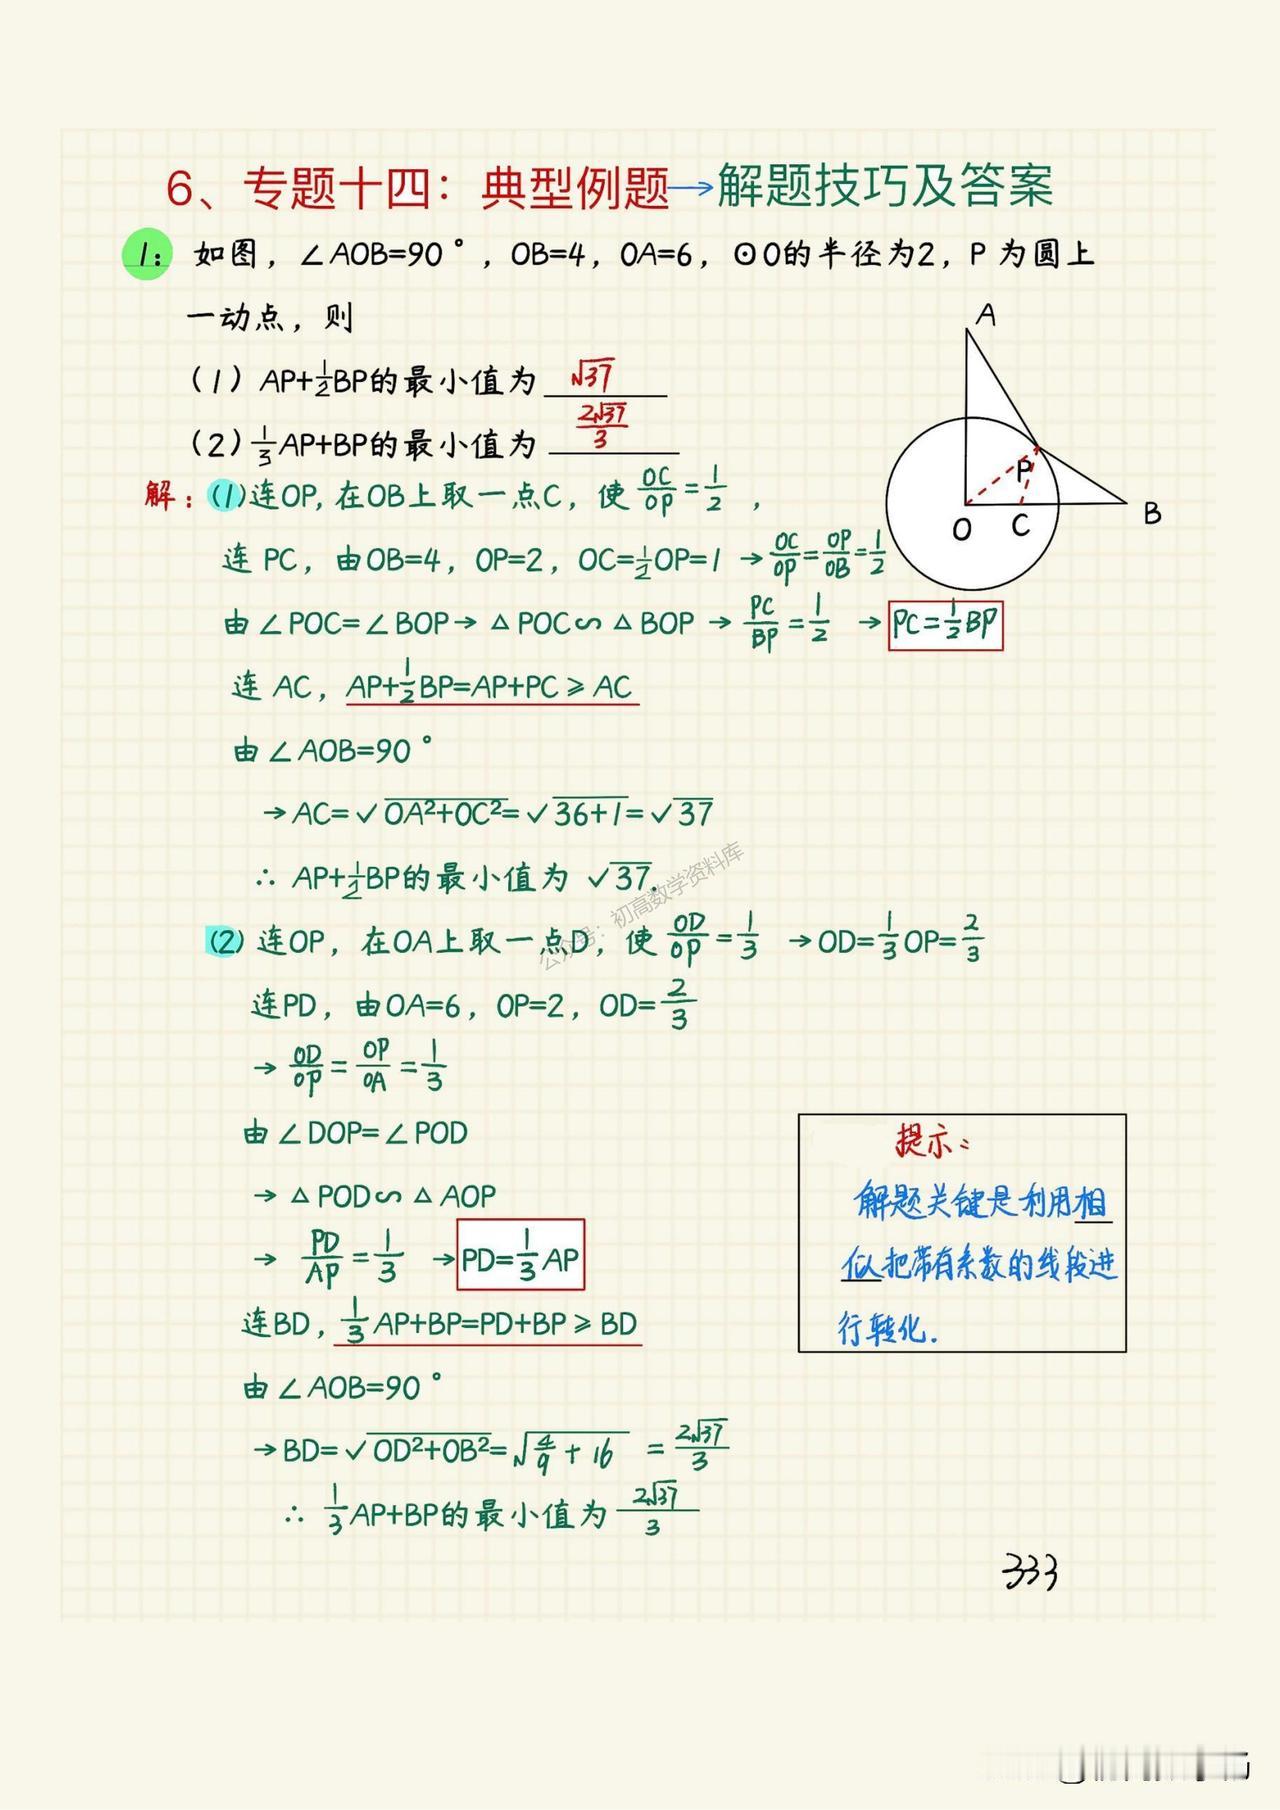 6、专题十四：典型例题→解题技巧及答案
1: 如图，∠AOB=90°，OB=4，OA=6，⊙O的半径为2，P为圆上
一动点，则
(1) AP+1/2BP的最小值为 √37
(2) 1/3AP+BP的最小值为 2√37/3
A
P
O
C
B
解：(1)连OP，在OB上取一点C，使 OC/OP=1/2，
连 PC，由OB=4，OP=2，OC=1/2OP=1 →OC/OP=OP/OB=1/2
由∠POC=∠BOP→△POC∽△BOP → PC/BP=1/2 → PC=1/2BP
连 AC，AP+1/2BP=AP+PC⩾AC
由∠AOB=90°
→AC=√OA²+OC²=√36+1=√37
∴ AP+1/2BP的最小值为 √37.
公众号：初高数学资料库
(2) 连OP，在OA上取一点D，使 OD/OP=1/3 →OD=1/3OP=2/3
连PD，由OA=6，OP=2，OD=2/3
→ OD/OP=OP/OA=1/3
由∠DOP=∠POD
→△POD∽△AOP
→ PD/AP=1/3 →PD=1/3AP
连BD，1/3AP+BP=PD+BP⩾BD
由∠AOB=90°
→BD=√OD²+OB²=√4/9+16 = 2√37/3
∴ 1/3AP+BP的最小值为 2√37/3
提示：
解题关键是利用相
似把带有系数的线段进
行转化.
333